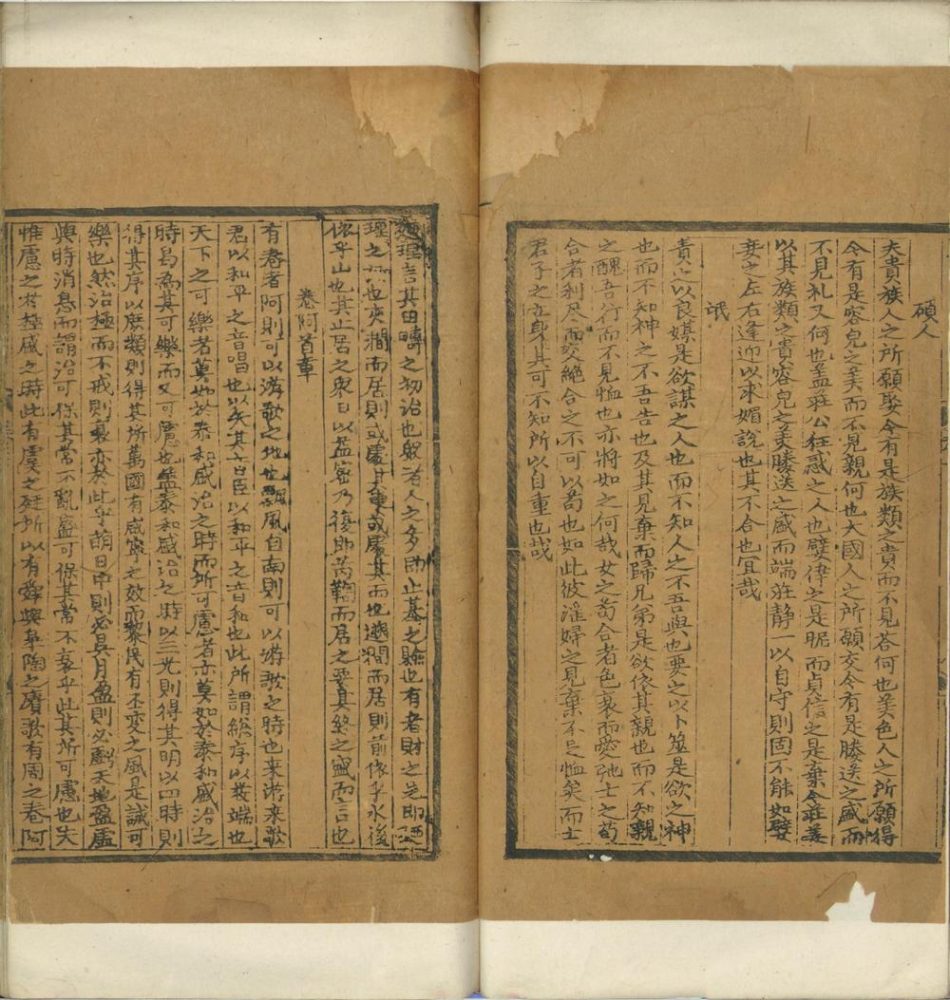 碩人
夫貴族人之所願娶今有是族類之貴而不見荅何也美色人之所願得
今有是容皃之美而不見親何也大國人之所願交今有是媵送之盛而
不見礼又何也盖莊公狂惑之人也嬖倖之是昵而貞信之是棄今莊姜
以其族類之貴容皃之美媵送之盛而端莊静一以自守則固不能如嬖
妾之左右逢迎以求媚說也其不合也冝哉
氓
責之以良媒是欲謀之人也而不知人之不吾與也要之以卜筮是欲之神
也而不知神之不吾告也及其見棄而歸兄弟是欲依其親也而不知親
之醜吾行而不見恤也亦將如之何哉女之苟合者色衰而愛弛士之苟
合者利尽而交絶合之不可以苟也如此彼淫婦之見棄不足恤矣而士
君子之立身其可不知所以自重也哉
廼理言其田疇之初治也衆者人之多即止基之驗也有者財之足即廼
理之也夾澗而居則或處其東或處其西也遡澗而居則前依乎水後
依乎山也其止居之衆日以益密乃復即芮鞫而居之要其終之盛而言也
卷阿首章
有卷者阿則可以游歌之地也飄風自南則可以游歌之時也来游来歌
君以和平之音唱也以矢其音臣以和平之音和也此所謂総序以發端也
天下之可樂者莫如於泰和盛治之時而所可慮者亦莫如於泰和盛治之
時曷為其可樂而又可慮也盖泰和盛治之時以三光則得其明以四時則
得其序以庶類則得其所萬國有咸寧之效而黎民有丕变之風是誠可
樂也然治極而不戒則衰亦於此乎萌日中則必昃月盈則必虧天地盈虛
與時消息而謂治可保其常不亂盛可保其常不衰乎此其所可慮也夫
惟慮之於極盛之時此有虞之廷所以有舜與皐陶之賡歌有周之卷阿